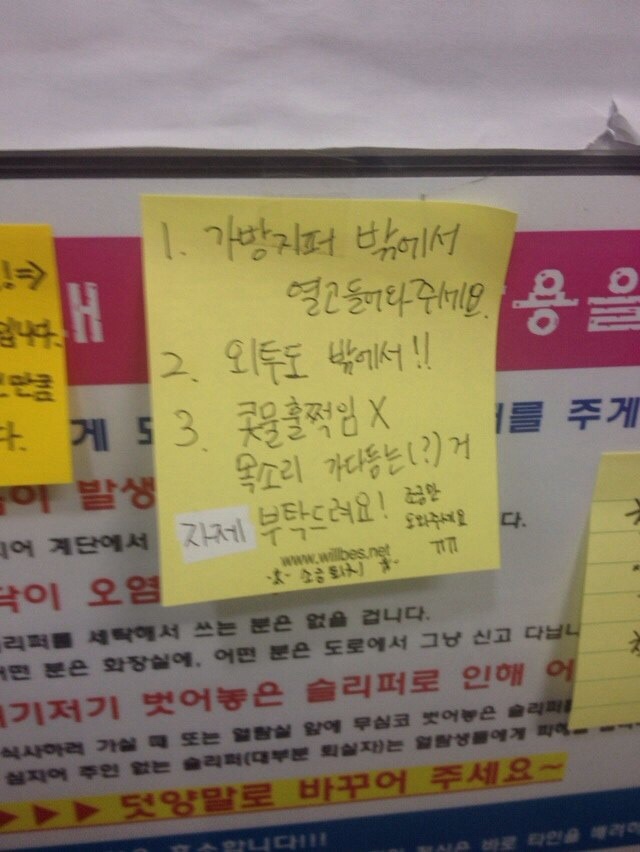 1. 가방지퍼 밖에서
열고들어와주세요.
2. 외투도 밖에서!!
3. 콧물훌쩍임 X
목소리 가다듬는(?)거
자제 부탁드려요! 조금만
도와주세요
ㅠㅠ
www.willbes.net
-※- 소음퇴치 -※-
!⇒
입니다.
만큼
다.
용을
게
를 주게
이 발생
다.
지어 계단에서
이 오염
리퍼를 세탁해서 쓰는 분은 없을 겁니다.
어떤 분은 화장실에, 어떤 분은 도로에서 그냥 신고 다닙니
여기저기 벗어놓은 슬리퍼로 인해 어
식사하러 가실 때 또는 열람실 앞에 무심코 벗어놓은 슬리퍼
심지어 주인 없는 슬리퍼(대부분 퇴실자)는 열람생들에게 피해
▶▶▶ 덧양말로 바꾸어 주세요~
합니다!!!
정신은 바로 타인을 배려하